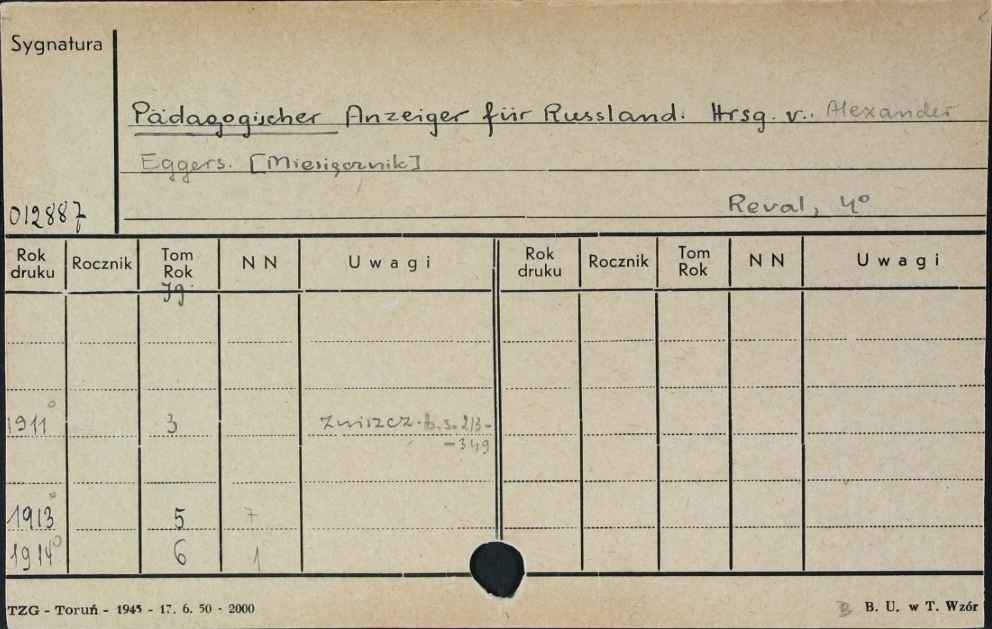 Sygnatura
Pädagogischer Anzeiger für Russland. Hrsg. v. Alexander
Eggers. [Miesięcznik]
012887
Reval, 4°
Rok druku Rocznik Tom Rok NN Uwagi Rok druku Rocznik Tom Rok NN Uwagi
Jg.
1911° 3 zniszcz. b. s. 213-
-349
1913° 5 7
1914° 6 1
TZG - Toruń - 1945 - 17. 6. 50 - 2000 B. U. w T. Wzór